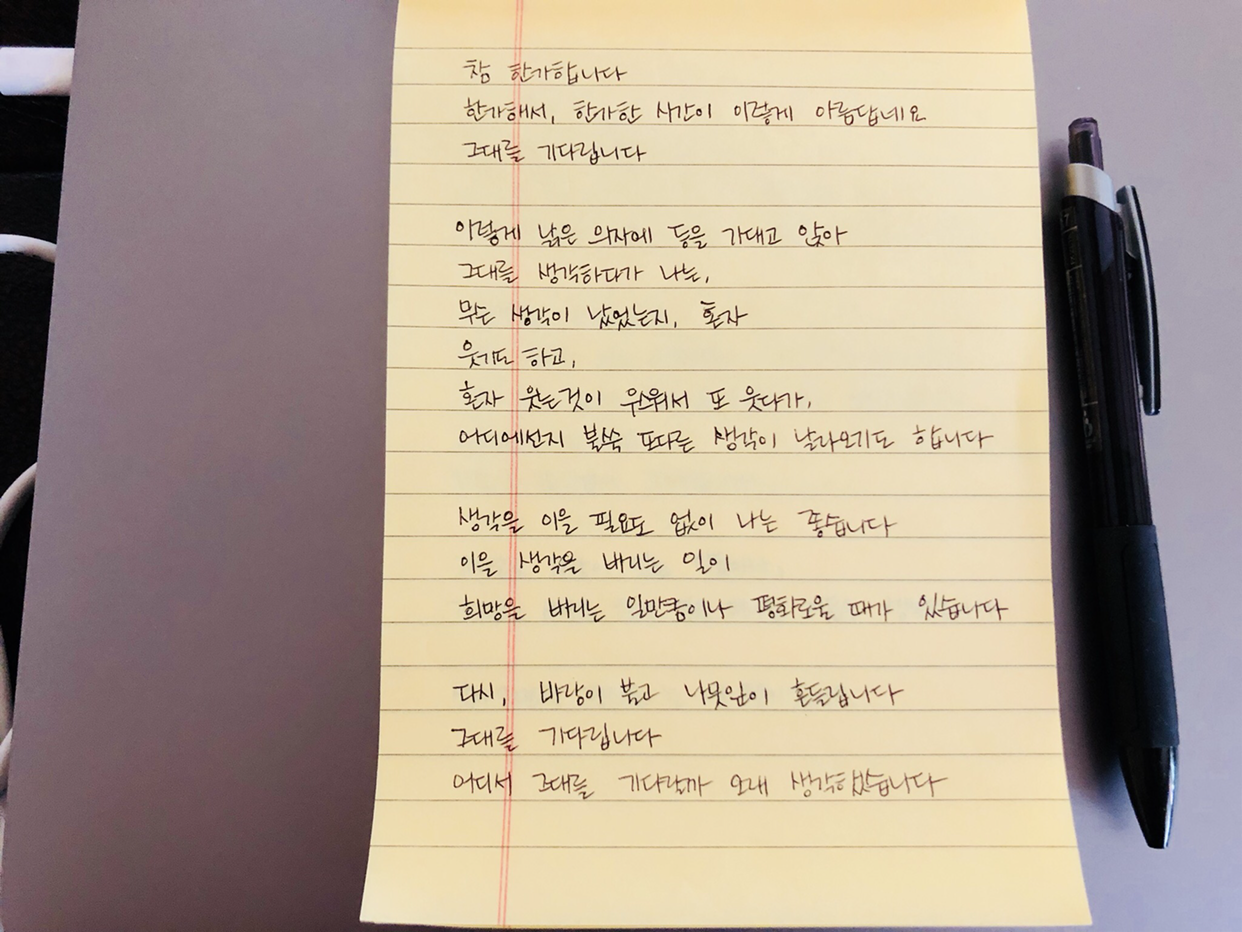 참 한가합니다
한가해서, 한가한 시간이 이렇게 아름답네요
그대를 기다립니다
이렇게 낡은 의자에 등을 가대고 앉아
그대를 생각하다가 나는,
무슨 생각이 났었는지, 혼자
웃기도 하고,
혼자 웃는것이 우스워서 또 웃다가,
어디에선지 불쑥 또다른 생각이 날라오기도 합니다
생각을 이을 필요도 없이 나는 좋습니다
이을 생각을 버리는 일이
희망을 버리는 일만큼이나 평화로울 때가 있습니다
다시, 바람이 불고 나뭇잎이 흔들립니다
그대를 기다립니다
어디서 그대를 기다릴까 오래 생각했습니다